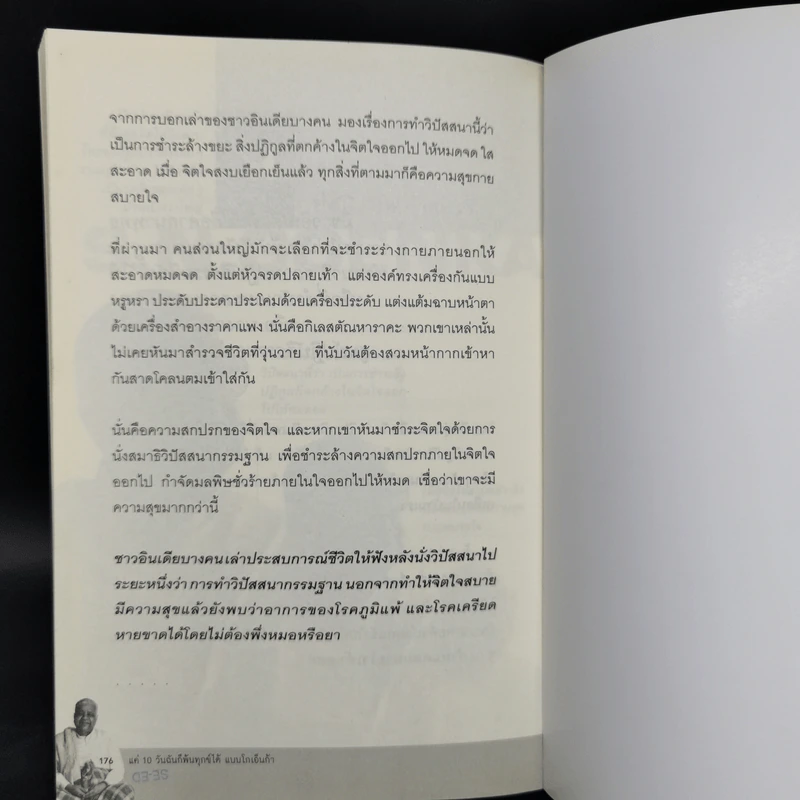 จากการบอกเล่าของชาวอินเดียบางคน มองเรื่องการทำวิปัสสนานี้ว่า
เป็นการชำระล้างขยะ สิ่งปฏิกูลที่ตกค้างในจิตใจออกไป ให้หมดจด ใส
สะอาด เมื่อ จิตใจสงบเยือกเย็นแล้ว ทุกสิ่งที่ตามมาก็คือความสุขกาย
สบายใจ
ที่ผ่านมา คนส่วนใหญ่มักจะเลือกที่จะชำระร่างกายภายนอกให้
สะอาดหมดจด ตั้งแต่หัวจรดปลายเท้า แต่งองค์ทรงเครื่องกันแบบ
หรูหรา ประดับประดาประโคมด้วยเครื่องประดับ แต่งแต้มฉาบหน้าตา
ด้วยเครื่องสำอางราคาแพง นั่นคือกิเลสตัณหาราคะ พวกเขาเหล่านั้น
ไม่เคยหันมาสำรวจชีวิตที่วุ่นวาย ที่นับวันต้องสวมหน้ากากเข้าหา
กันสาดโคลนตมเข้าใส่กัน
นั่นคือความสกปรกของจิตใจ และหากเขาหันมาชำระจิตใจด้วยการ
นั่งสมาธิวิปัสสนากรรมฐาน เพื่อชำระล้างความสกปรกภายในจิตใจ
ออกไป กำจัดมลพิษชั่วร้ายภายในใจออกไปให้หมด เชื่อว่าเขาจะมี
ความสุขมากกว่านี้
ชาวอินเดียบางคน เล่าประสบการณ์ชีวิตให้ฟังหลังนั่งวิปัสสนาไป
ระยะหนึ่งว่า การทำวิปัสสนากรรมฐาน นอกจากทำให้จิตใจสบาย
มีความสุขแล้วยังพบว่าอาการของโรคภูมิแพ้ และโรคเครียด
หายขาดได้โดยไม่ต้องพึ่งหมอหรือยา
. . . . .
176 แค่ 10 วันฉันก็พ้นทุกข์ได้ แบบโกเอ็นก้า
SE-ED